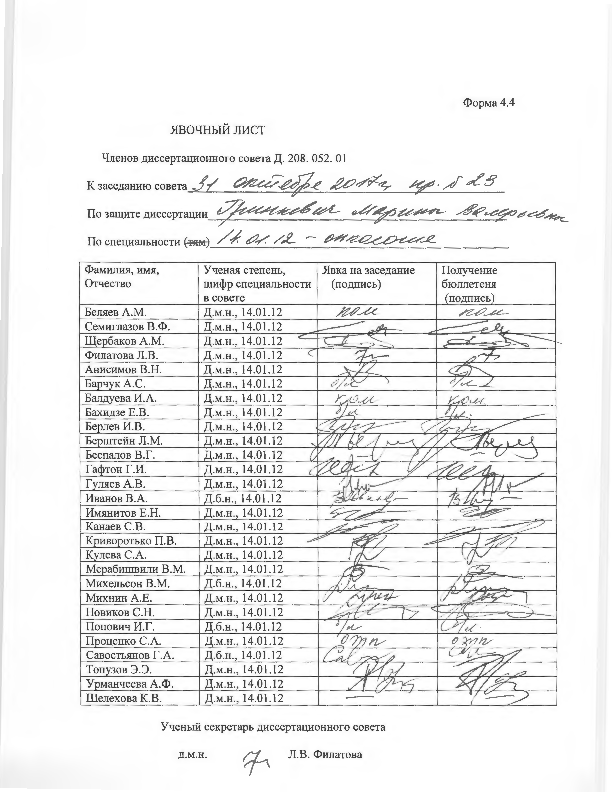 Форма 4.4
ЯВОЧНЫЙ ЛИСТ
Членов диссертационного совета Д. 208. 052. 01
К заседанию совета 31 октября 2017г, пр. № 23
По защите диссертации Гринкевич Марины Валерьевны
По специальности (тям) 14.01.12 - онкология
Фамилия, имя, Отчество Ученая степень, шифр специальности в совете Явка на заседание (подпись) Получение бюллетеня (подпись)
Беляев А.М. Д.м.н., 14.01.12 ком ком
Семиглазов В.Ф. Д.м.н., 14.01.12
Щербаков А.М. Д.м.н., 14.01.12
Филатова Л.В. Д.м.н., 14.01.12
Анисимов В.Н. Д.м.н., 14.01.12
Барчук А.С. Д.м.н., 14.01.12 б/л б/л
Балдуева И.А. Д.м.н., 14.01.12 ком ком
Бахидзе Е.В. Д.м.н., 14.01.12 б/л б/л.
Берлев И.В. Д.м.н., 14.01.12
Берштейн Л.М. Д.м.н., 14.01.12
Беспалов В.Г. Д.м.н., 14.01.12
Гафтон Г.И. Д.м.н., 14.01.12
Гуляев А.В. Д.м.н., 14.01.12
Иванов В.А. Д.б.н., 14.01.12
Имянитов Е.Н. Д.м.н., 14.01.12
Канаев С.В. Д.м.н., 14.01.12
Криворотько П.В. Д.м.н., 14.01.12
Кулева С.А. Д.м.н., 14.01.12
Мерабишвили В.М. Д.м.н., 14.01.12
Михельсон В.М. Д.б.н., 14.01.12
Михнин А.Е. Д.м.н., 14.01.12
Новиков С.Н. Д.м.н., 14.01.12
Попович И.Г. Д.б.н., 14.01.12 б/л б/л.
Проценко С.А. Д.м.н., 14.01.12 отп отп
Савостьянов Г.А. Д.б.н., 14.01.12
Топузов Э.Э. Д.м.н., 14.01.12
Урманчеева А.Ф. Д.м.н., 14.01.12
Шелехова К.В. Д.м.н., 14.01.12
Ученый секретарь диссертационного совета
д.м.н. Л.В. Филатова